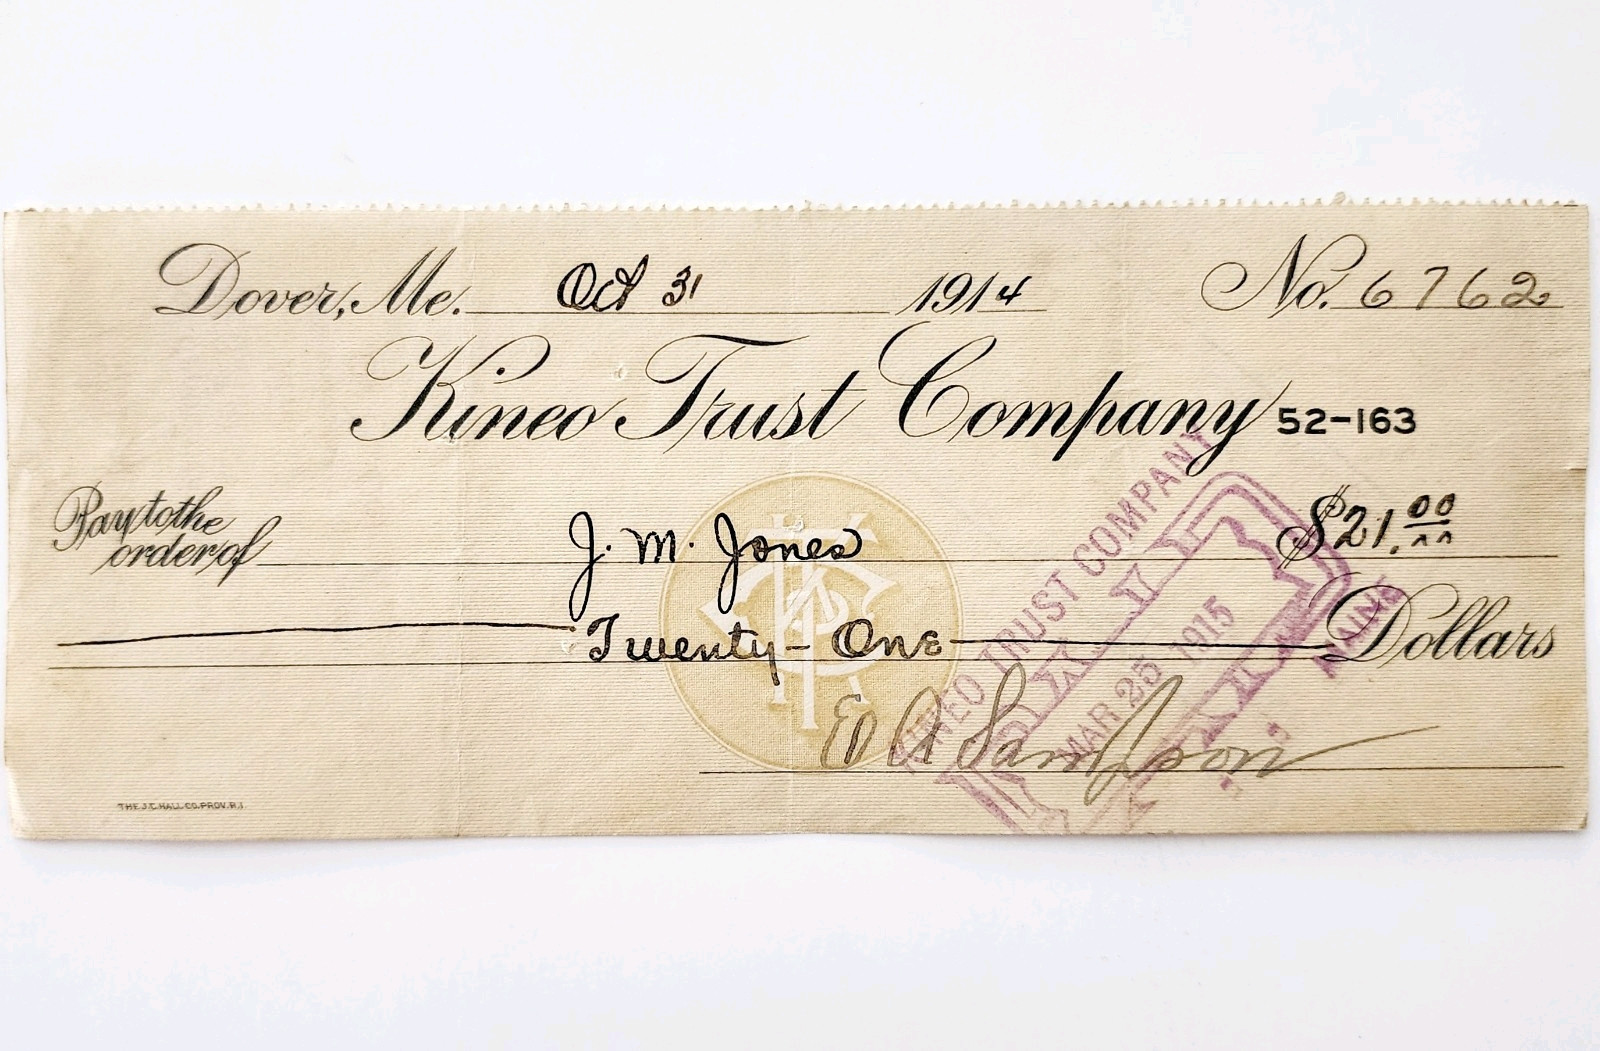 Dover, Me. Oct 31 1914 No. 6762
Kineo Trust Company 52-163
Pay to the order of J. M. Jones $21.00
Twenty-One Dollars
E A Sampson
KINEO TRUST COMPANY
PAID
MAR 25 1915
MAINE
THE J.C. HALL CO. PROV. R.I.